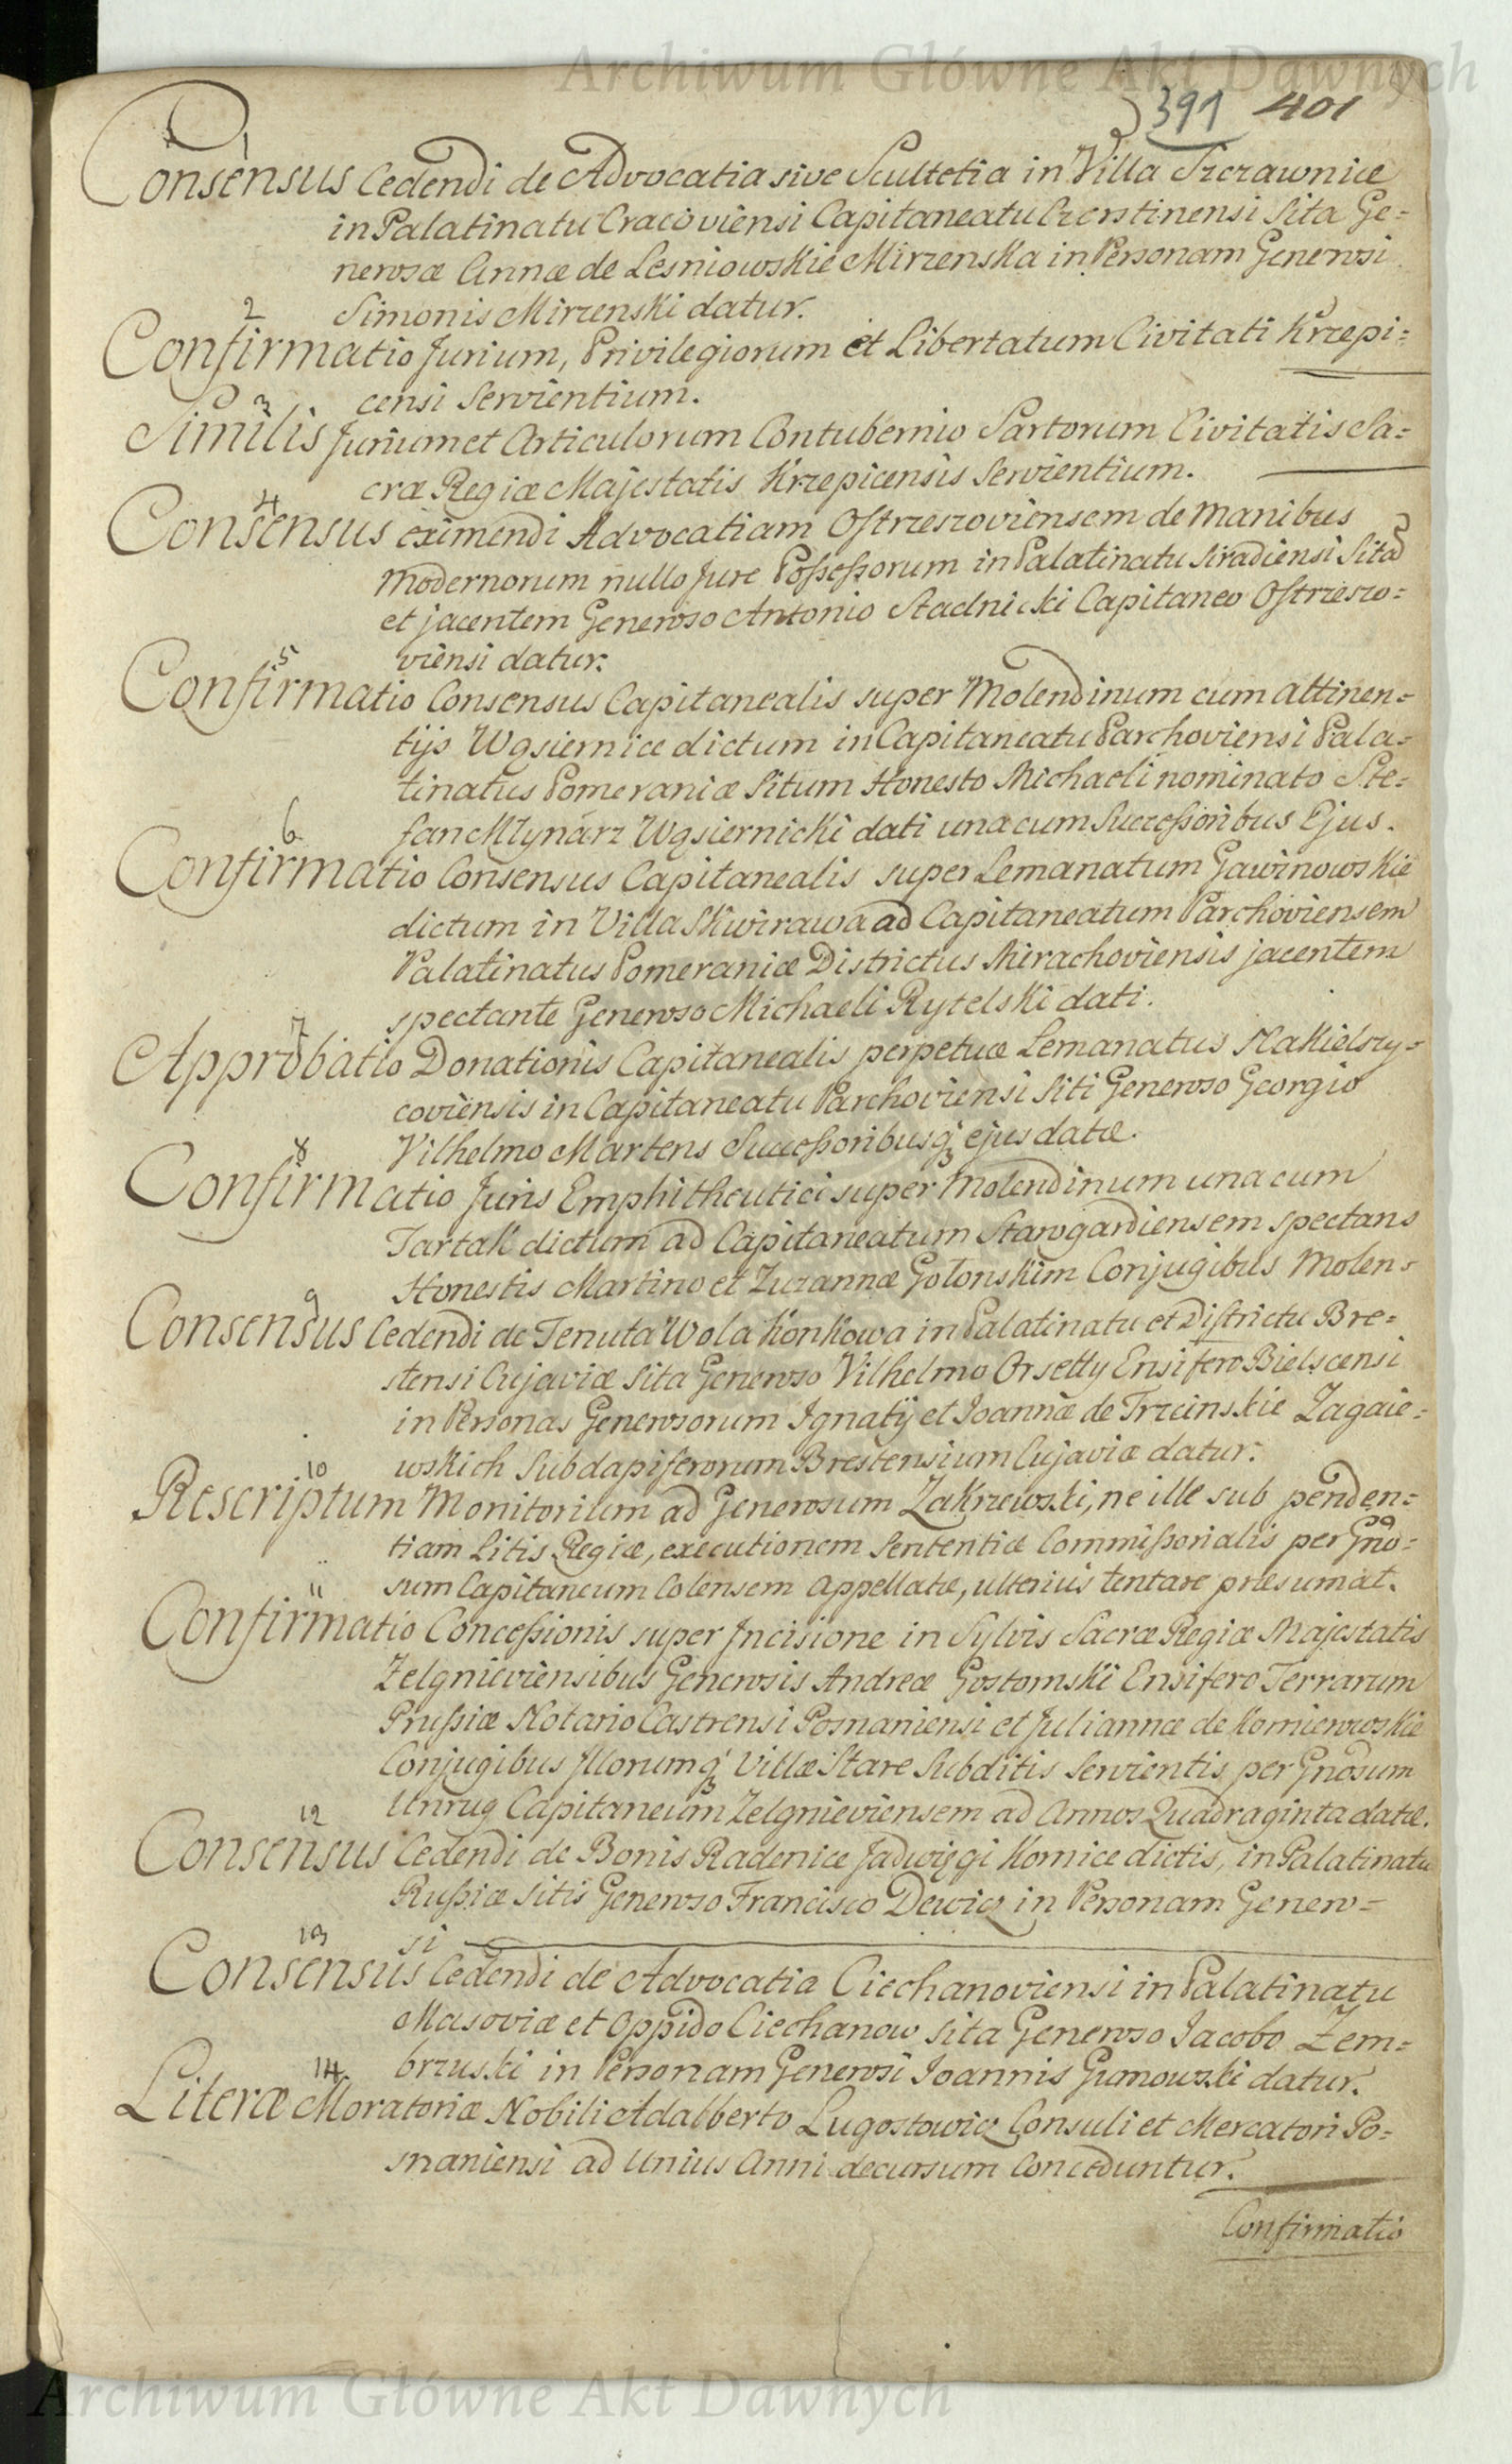 Archiwum Główne Akt Dawnych
391 401
1
Consensus Cedendi de Advocatia sive Scultetia in Villa Szczawnice
in Palatinatu Cracoviensi Capitaneatu Czorstinensi Sita Ge=
nerosæ Annæ de Lesniowskie Mirzenska in Personam Generosi
Simonis Mirzenski datur.
2
Confirmatio Jurium, Privilegiorum et Libertatum Civitati Krzepi=
censi Servientium.
3
Similis Jurium et Articulorum Contubernio Sartorum Civitatis Sa=
cræ Regiæ Majestatis Krzepicensis Servientium.
4
Consensus eximendi Advocatiam Ostrzeszoviensem de Manibus
Modernorum nullo Jure Possessorum in Palatinatu Siradiensi Sitā
et jacentem Generoso Antonio Stadnicki Capitaneo Ostrzeszo=
viensi datur.
5
Confirmatio Consensus Capitanealis super Molendinum cum attinen=
tijs Wąsiernice dictum in Capitaneatu Parchoviensi Pala=
tinatus Pomeraniæ Situm Honesto Michaeli nominato Ste=
fan Młynarz Wąsiernicki dati una cum Successoribus Ejus.
6
Confirmatio Consensus Capitanealis super Lemanatum Gawinowskie
dictum in Villa Skwirawa ad Capitaneatum Parchoviensem
Palatinatus Pomeraniæ Districtus Mirachoviensis jacentem
spectante Generoso Michaeli Rytelski dati.
7
Approbatio Donationis Capitanealis perpetuæ Lemanatus Nakielszy=
coviensis in Capitaneatu Parchoviensi Siti Generoso Georgio
Vilhelmo Martens Successoribusq3 ejus datæ.
8
Confirmatio Juris Emphitheutici super Molendinum una cum
Tartak dictum ad Capitaneatum Starogardiensem spectans
Honestis Martino et Zuzannæ Gołonskim Conjugibus Molen=
9
Consensus Cedendi de Tenuta Wola Konkowa in Palatinatu et Districtu Bre=
stensi Cujaviæ Sita Generoso Vilhelmo Orsetty Ensifero Bielscensi
in Personas Generosorum Ignatÿ et Joannæ de Trzcinskie Zagaie=
wskich Subdapiferorum Brestensium Cujaviæ datur.
10
Rescriptum Monitorium ad Generosum Zakrzewski, ne ille sub penden=
tiam Litis Regiæ, executionem Sententiæ Commissorialis per Gnro=
sum Capitaneum Colensem Appellatæ, ulterius tentare præsumat.
11
Confirmatio Concessionis super Incisione in Sylvis Sacræ Regiæ Majestatis
Zelgnieviensibus Generosis Andreæ Gostomski Ensifero Terrarum
Prussiæ Notario Castrensi Posnaniensi et Juliannæ de Komierowskie
Conjugibus Illorumq3 Villæ Stare Subditis Servientis per Gnōsum
Unrug Capitaneum Zelgnieviensem ad Annos Quadraginta datæ.
12
Consensus Cedendi de Bonis Radenice Jadwięgi Kornice dictis, in Palatinatu
Russiæ Sitis Generoso Francisco Dewicz in Personam Genero=
si
13
Consensus Cedendi de Advocatia Ciechanoviensi in Palatinatu
Masoviæ et Oppido Ciechanow Sita Generoso Jacobo Zem=
brzuski in Personam Generosi Joannis Gumowski datur.
14
Literæ Moratoriæ Nobili Adalberto Lugostowicz Consuli et Mercatori Po=
snaniensi ad Unius Anni decursum Conceduntur.
Confirmatio
Archiwum Główne Akt Dawnych